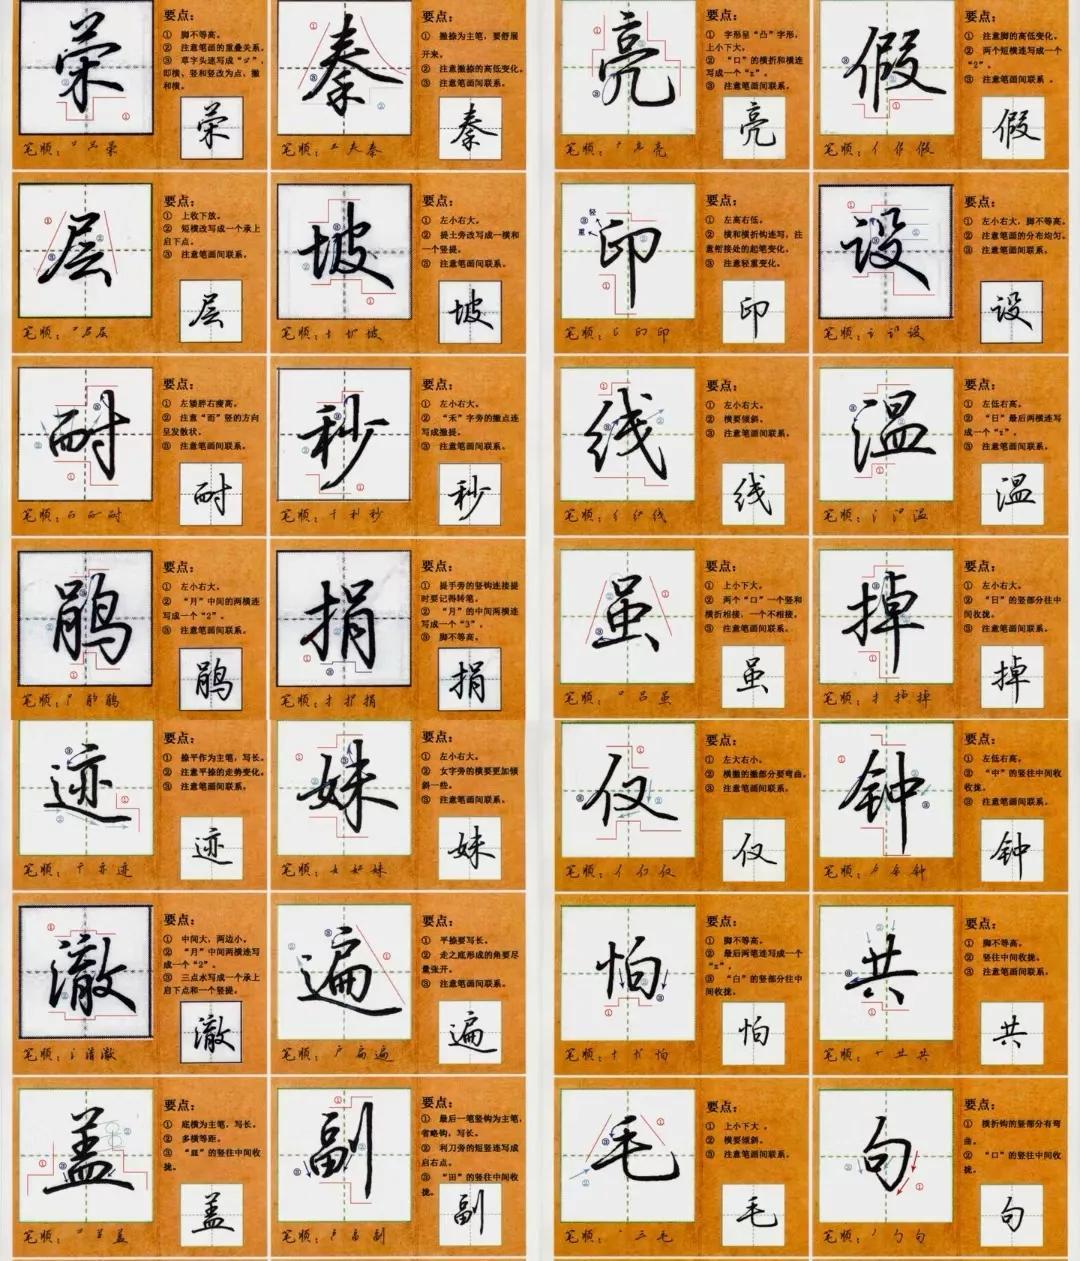 荣
要点：
① 脚不等高。
② 注意笔画的重叠关系。
③ 草字头连写成“ ”，
即横、竖和竖改为点、撇
和横。
荣
笔顺：荣
秦
要点：
① 撇捺为主笔，要舒展
开来。
② 注意撇捺的高低变化。
③ 注意笔画间联系。
秦
笔顺：夫秦
亮
要点：
① 字形呈“凸”字形，
上小下大。
② “口”的横折和横连
写成一个“z”。
③ 注意笔画间联系。
亮
笔顺：亮
假
要点：
① 注意脚的高低变化。
② 两个短横连写成一个
“2”。
③ 注意笔画间联系。
假
笔顺：假
层
要点：
① 上收下放。
② 短横改写成一个承上
启下点。
③ 注意笔画间联系。
层
笔顺：层
坡
要点：
① 左小右大。
② 提土旁改写成一横和
一个竖提。
③ 注意笔画间联系。
坡
笔顺：坡
印
轻
重
要点：
① 左高右低。
② 横和横折钩连写，注
意衔接处的起笔变化。
③ 注意轻重变化。
印
笔顺：印
设
要点：
① 左小右大，脚不等高。
② 注意笔画的分布均匀。
③ 注意笔画间联系。
设
笔顺：设
耐
要点：
① 左矮胖右瘦高。
② 注意“而”竖的方向
呈发散状。
③ 注意笔画间联系。
耐
笔顺：耐
秒
要点：
① 左小右大。
② “禾”字旁的撇点连
写成撇提。
③ 注意笔画间联系。
秒
笔顺：秒
线
要点：
① 左小右大。
② 横要倾斜。
③ 注意笔画间联系。
线
笔顺：线
温
要点：
① 左低右高。
② “日”最后两横连写
成一个“z”。
③ 注意笔画间联系。
温
笔顺：温
鹃
要点：
① 左小右大。
② “月”中间的两横连
写成一个“2”。
③ 注意笔画间联系。
鹃
笔顺：鹃
捐
要点：
① 提手旁的竖钩连接提
时要记得转笔。
② “月”的中间两横连
写成一个“3”。
③ 脚不等高。
捐
笔顺：捐
虽
要点：
① 上小下大。
② 两个“口”一个竖和
横折相接，一个不相接。
③ 注意笔画间联系。
虽
笔顺：吕虽
掉
要点：
① 左小右大。
② “日”的竖部分往中
间收拢。
③ 注意笔画间联系。
掉
笔顺：掉
迹
要点：
① 捺平作为主笔，写长。
② 注意平捺的走势变化。
③ 注意笔画间联系。
迹
笔顺：亦迹
妹
要点：
① 左小右大。
② 女字旁的横要更加倾
斜一些。
③ 注意笔画间联系。
妹
笔顺：妹
仅
要点：
① 左大右小。
② 横撇的撇部分要弯曲。
③ 注意笔画间联系。
仅
笔顺：仅
钟
要点：
① 左低右高。
② “中”的竖往中间收
收拢。
③ 注意笔画间联系。
钟
笔顺：钟
澈
要点：
① 中间大，两边小。
② “月”中间两横连写
成一个“2”。
③ 三点水写成一个承上
启下点和一个竖提。
澈
笔顺：澈
遍
要点：
① 平捺要写长。
② 走之底形成的角要尽
量张开。
③ 注意笔画间联系。
遍
笔顺：扁遍
怕
要点：
① 脚不等高。
② 最后两笔连写成一个
“z”。
③ “白”的竖部分往中
间收拢。
怕
笔顺：怕
共
要点：
① 脚不等高。
② 竖往中间收拢。
③ 注意笔画间联系。
共
笔顺：共
盖
要点：
① 底横为主笔，写长。
② 多横等距。
③ “皿”的竖往中间收
拢。
盖
笔顺：盖
副
要点：
① 最后一笔竖钩为主笔，
省略钩，写长。
② 利刀旁的短竖连写成
启右点。
③ “田”的竖往中间收
拢。
副
笔顺：副
毛
要点：
① 上小下大。
② 横要倾斜。
③ 注意笔画间联系。
毛
笔顺：三毛
句
要点：
① 横折钩的竖部分有弯
曲。
② “口”的竖往中间收
拢。
句
笔顺：句